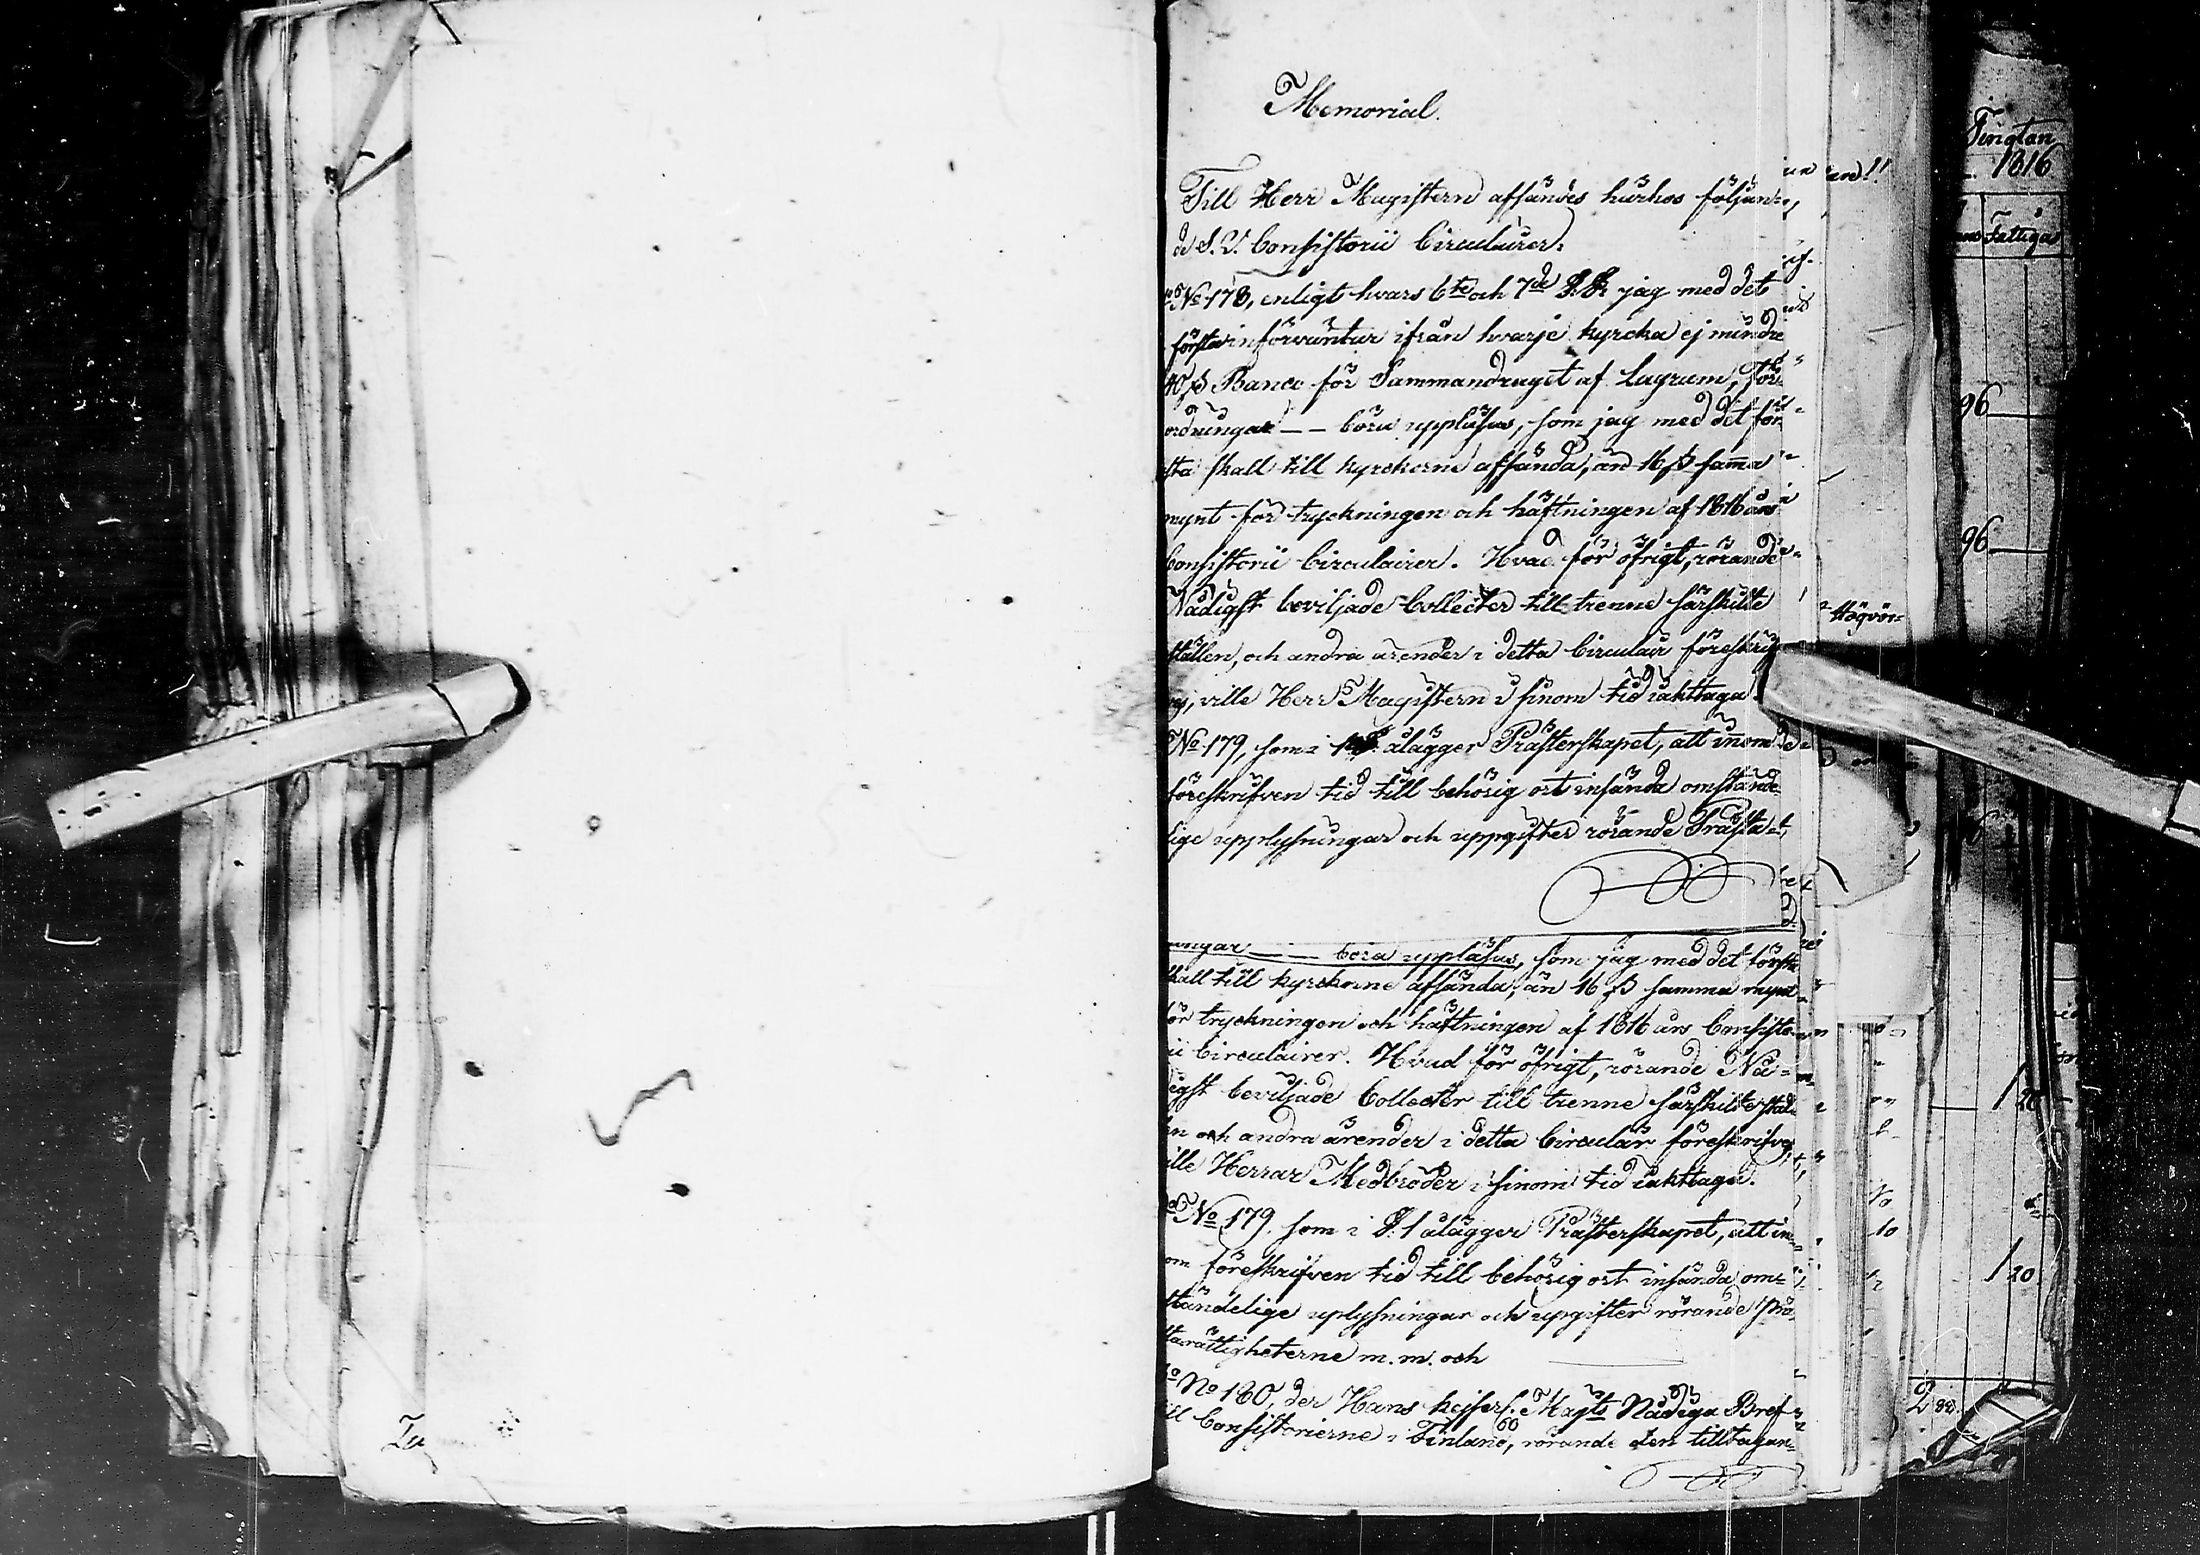 Memorial.
Till Herr Magistern affsändes härhos följan-
de S. V. Consistorii Circulairer.
No 178, enligt hvars 6te och 7de §§ jag med det
första införväntar ifrån hvarje kyrcka ej mindre
40 ß Banco för Sammandraget af Lagrum, För-
ordningar — — böra uppläsas, som jag med det för-
sta skall till kyrckorne affsända, än 16 ß samma
mynt för tryckningen och häftningen af 1816 års
Consistorii Circulairer. Hvad för öfrigt, rörande
Nådigst beviljade Collecter till trenne särskilte
ställen, och andra ärender i detta Circulair föreskrif-
vs, ville Herr Magistern i sinom tid iakttaga.
No 179, som i 1 §. ålägger Prästerskapet, att inom
föreskrifven tid till behörig ort insända omstände-
lige upplysningar och uppgifter rörande Prästa-
ningar — — böra uppläsas, som jag med det första
skall till kyrckorne affsända, än 16 ß samma mynt
för tryckningen och häftningen af 1816 års Consisto-
rii Circulairer. Hvad för öfrigt, rörande Nå-
digst beviljade Collecter till trenne särskilte stäl-
len och andra ärender i detta Circulär föreskrifves,
ville Herrar Medbröder i sinom tid iakttaga.
No 179. som i §. 1 ålägger Prästerskapet, att in-
om föreskrifven tid till behörig ort insända om-
ständelige uplysningar och upgifter rörande Prä-
starättigheterne m. m. och
No 180, der Hans Kejserl. Majts Nådiga Bref
till Consistorierne i Finland, rörande den tilltagan-
Högvör-
1816
Fattiga
96
96
1 20
1 20
2